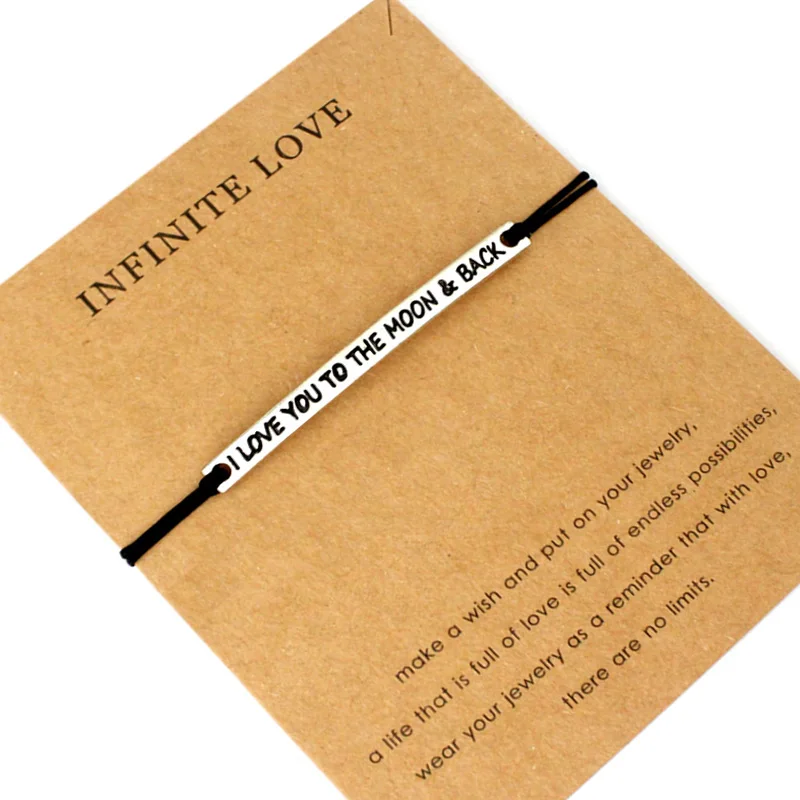 INFINITE LOVE
I LOVE YOU TO THE MOON & BACK
make a wish and put on your jewelry,
a life that is full of love is full of endless possibilities,
wear your jewelry as a reminder that with love,
there are no limits.